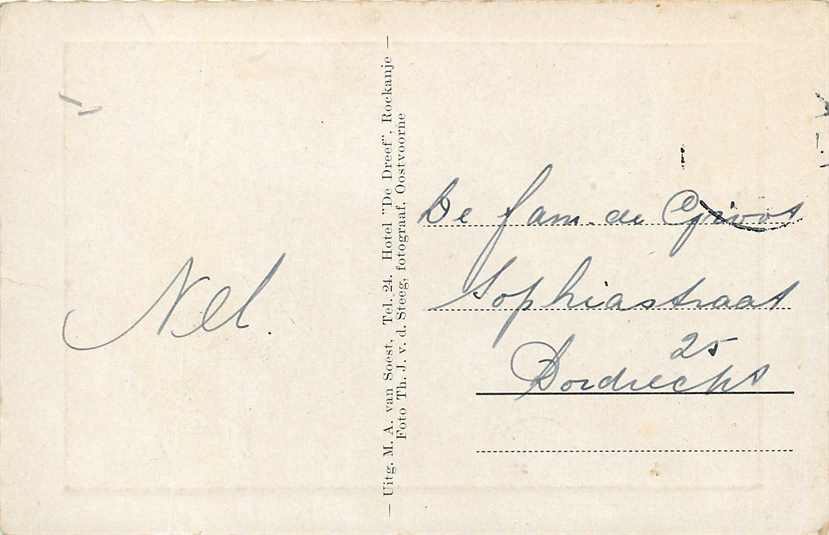 Nel.
— Uitg. M. A. van Soest, Tel. 24. Hotel "De Dreef", Rockanje —
Foto Th. J. v. d. Steeg, fotograaf, Oostvoorne
De fam. de Groot
Sophiastraat
25
Dordrecht